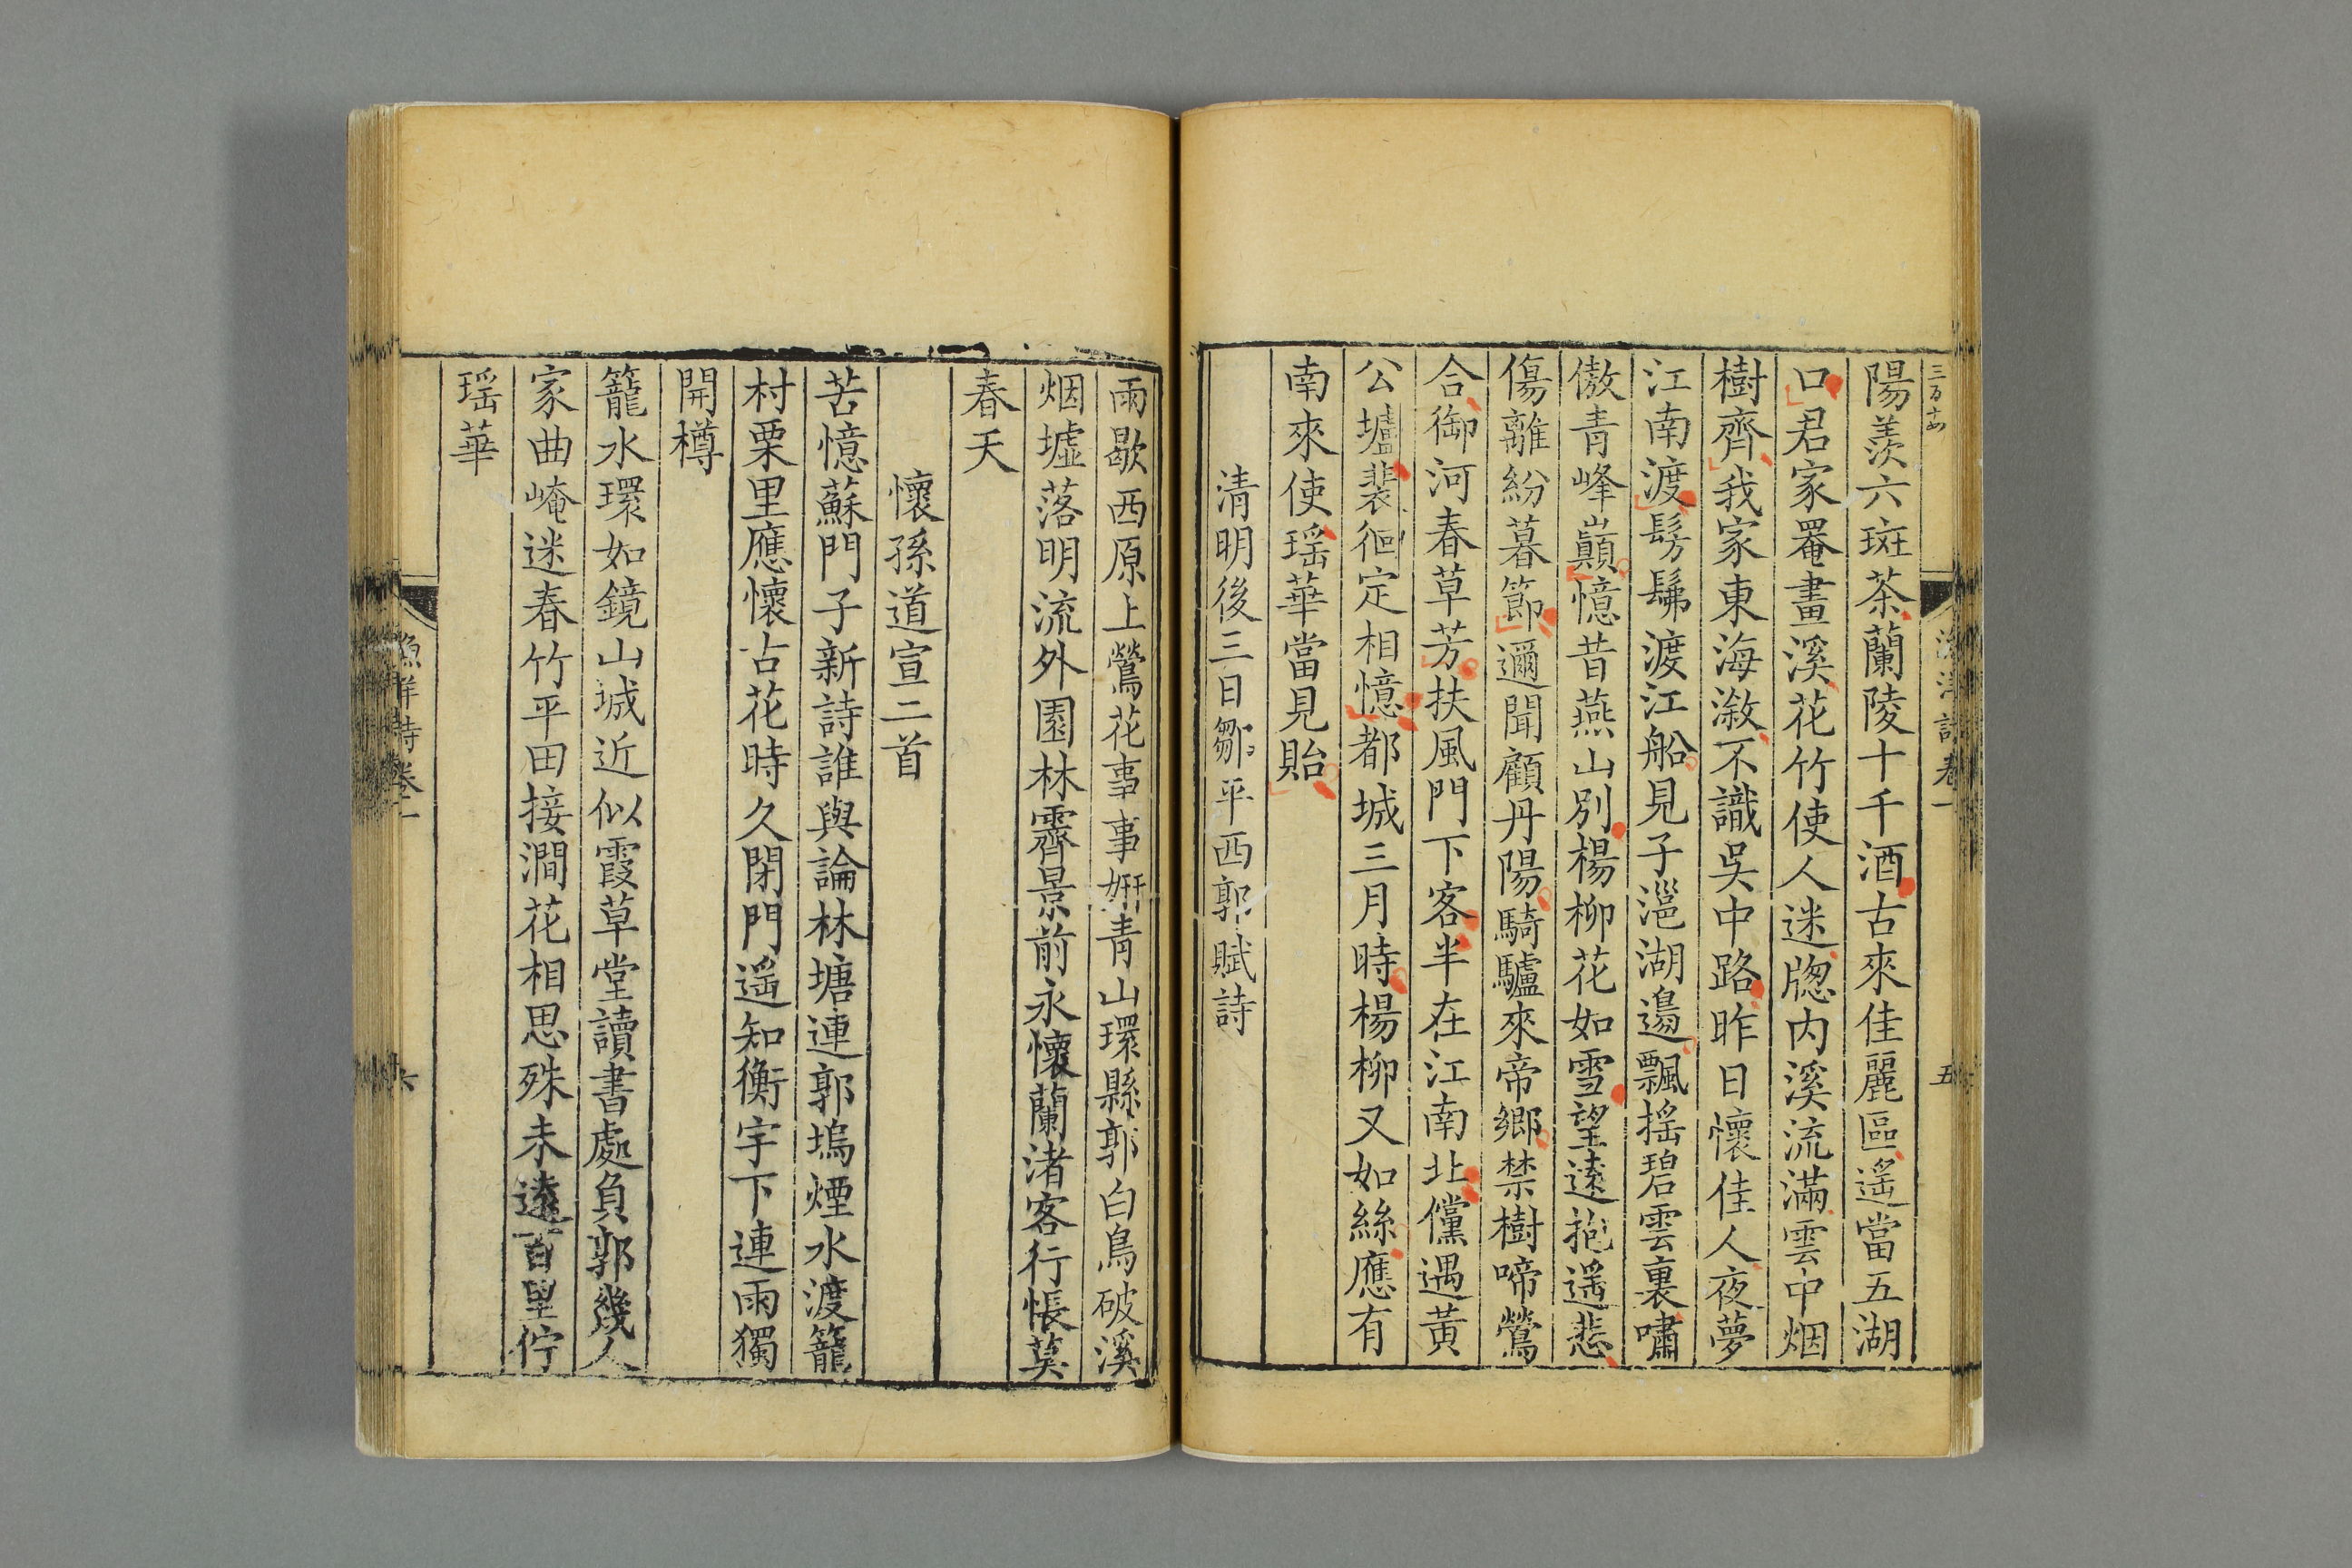 陽羨六斑茶蘭陵十千酒古來佳麗區遥當五湖
口君家罨畫溪花竹使人迷牎内溪流滿雲中烟
樹齊我家東海漵不識吳中路昨日懷佳人夜夢
江南渡髣髴渡江船見子滆湖邉飄揺碧雲裏嘯
傲青峰巔憶昔燕山別楊柳花如雪望逺抱遥悲
傷離紛暮節邇聞顧丹陽騎驢來帝鄉禁樹啼鶯
合御河春草芳扶風門下客半在江南北儻遇黃
公壚裴徊定相憶都城三月時楊柳又如絲應有
南來使瑶華當見貽
清明後三日鄒平西郭賦詩
卷一
五
雨歇西原上鶯花事事妍青山環縣郭白鳥破溪
烟墟落明流外園林霽景前永懷蘭渚客行悵莫
春天
懷孫道宣二首
苦憶蘇門子新詩誰與論林塘連郭塢煙水渡籠
村栗里應懷占花時久閉門遥知衡宇下連雨獨
開樽
籠水環如鏡山城近似霞草堂讀書處負郭幾人
家曲崦迷春竹平田接澗花相思殊未逺百里佇
瑶華
漁洋詩卷一
六